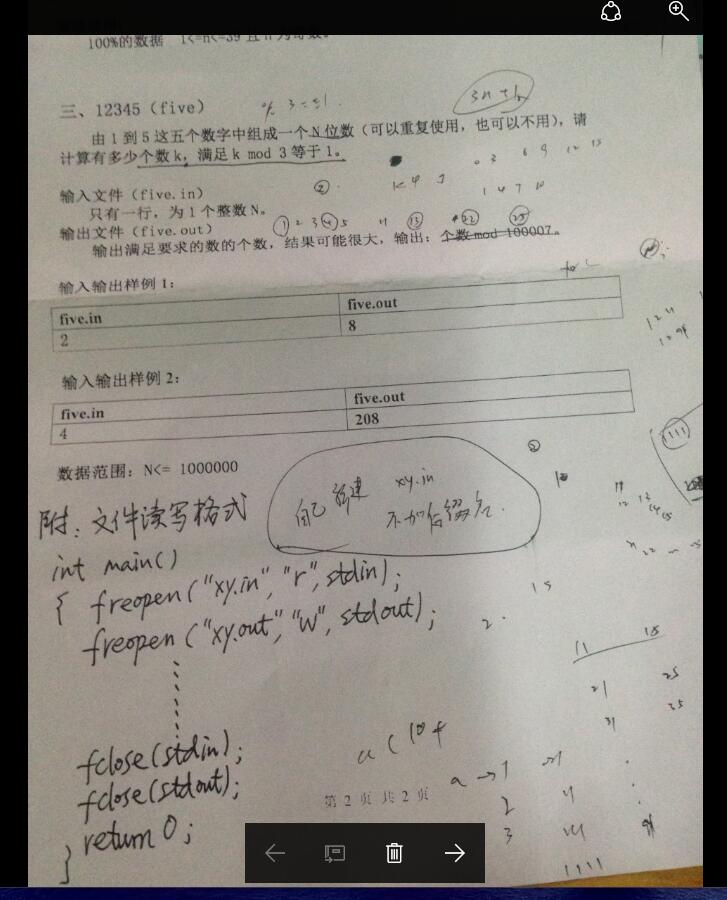 100%的数据 1<=n<=39 且 n 为奇数。
三、12345（five）
% 3 = 1.
由 1 到 5 这五个数字中组成一个 N 位数（可以重复使用，也可以不用），请
计算有多少个数 k，满足 k mod 3 等于 1。
输入文件（five.in）
只有一行，为 1 个整数 N。
1 4 7 10
输出文件（five.out）
① 2 3 ④ 5 11 ⑬ 22 25
输出满足要求的数的个数，结果可能很大，输出：个数 mod 100007。
输入输出样例 1：
five.in five.out
2 8
输入输出样例 2：
five.in five.out
4 208
数据范围：N<= 1000000
自己 新建 xy.in
不加后缀名.
附：文件读写格式
int main()
{ freopen("xy.in","r",stdin);
freopen("xy.out","w",stdout);
fclose(stdin);
fclose(stdout);
return 0;
}
第 2 页 共 2 页
11 15
21 25
31 35
1111